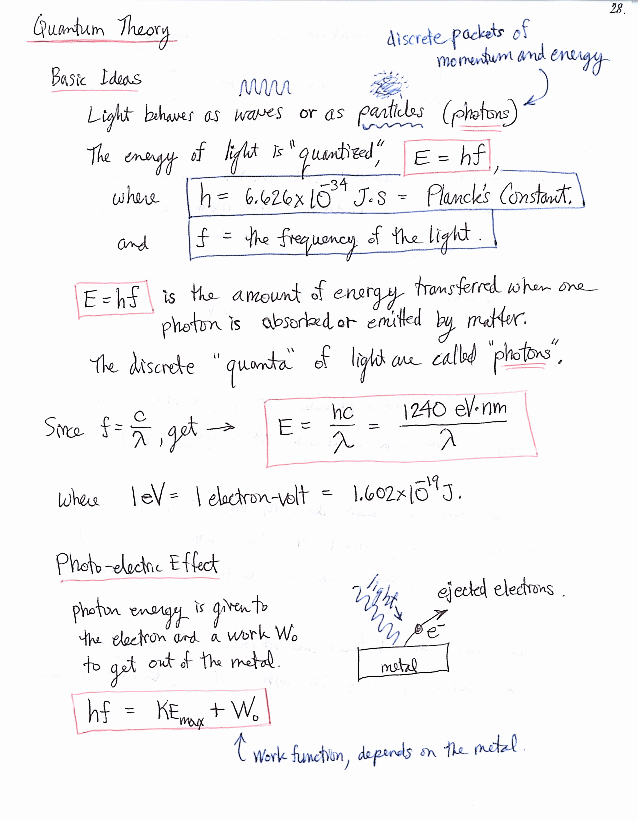 28.
Quantum Theory
discrete packets of
momentum and energy
Basic Ideas
Light behaves as waves or as particles (photons)
The energy of light is "quantized", E = hf,
where h = 6.626x10^-34 J·s = Planck's Constant.
and f = the frequency of the light.
E = hf is the amount of energy transferred when one
photon is absorbed or emitted by matter.
The discrete "quanta" of light are called "photons".
Since f = c/λ, get → E = hc/λ = 1240 eV·nm/λ
where 1eV = 1 electron-volt = 1.602x10^-19 J.
Photo-electric Effect
photon energy is given to
the electron and a work W₀
to get out of the metal.
light
ejected electrons.
e⁻
metal
hf = KE_max + W₀
↑ Work function, depends on the metal.